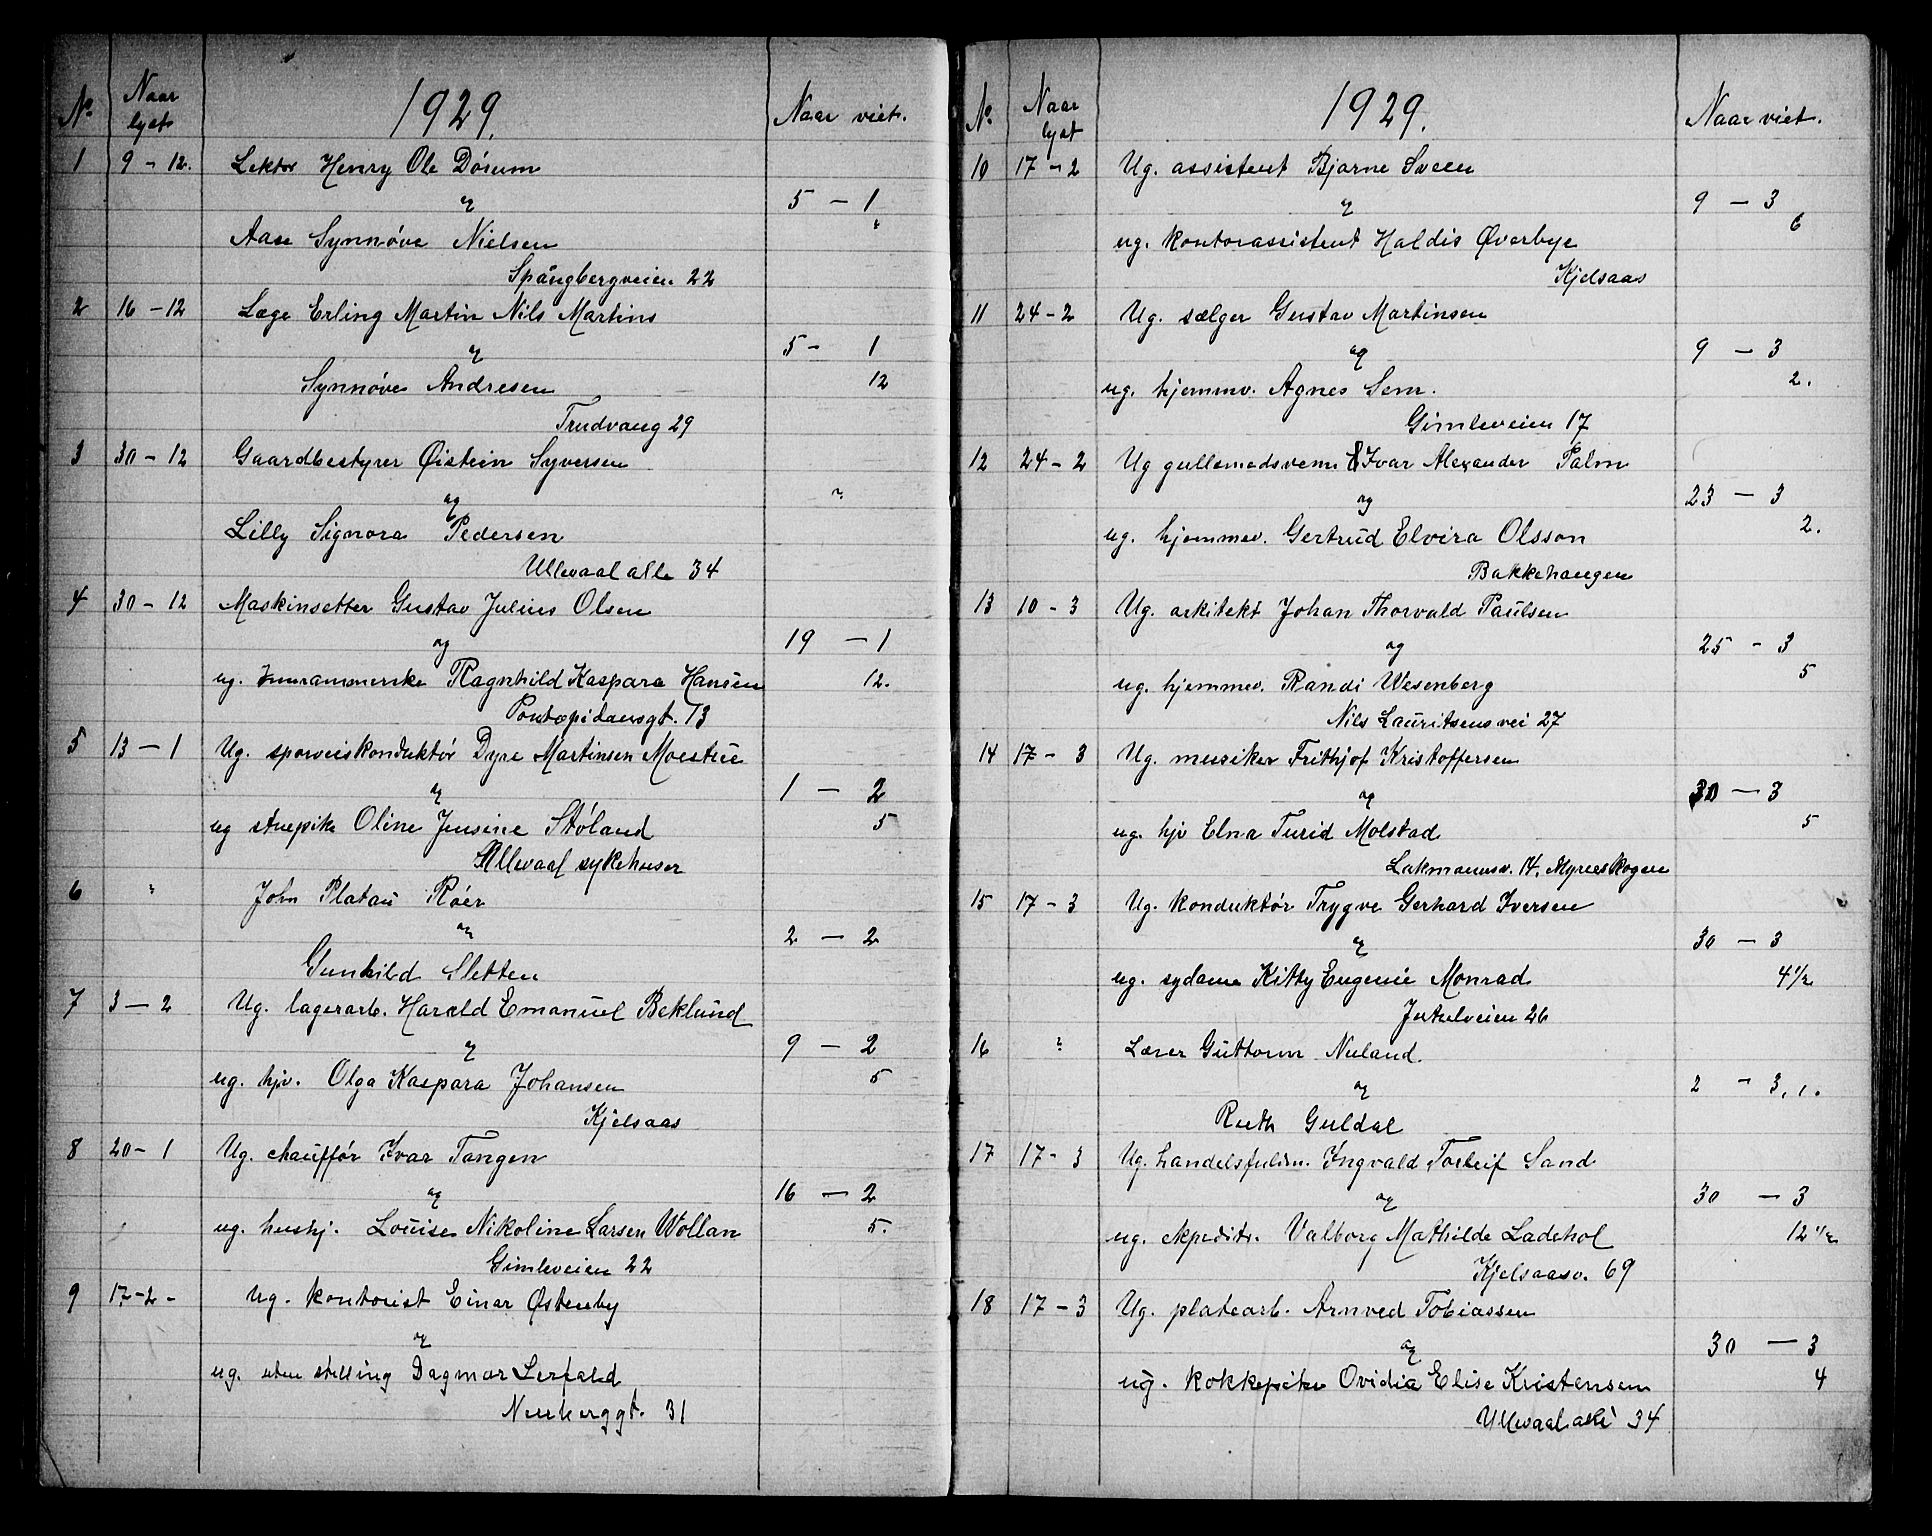 No Naar lyst 1929. Naar viet.
1 9 - 12. Lektor Henry Ole Dórum
og 5 - 1
Aase Synnóve Nielsen
Spångbergveien 22
2 16 - 12 Læge Erling Martin Nils Martins
og 5 - 1
Synnóve Andresen 12
Trudvang 29
3 30 - 12 Gaardbestyrer Øistein Syversen
og ?
Lilly Signora Pedersen
Ullevaal alle 34
4 30 - 12 Maskinsetter Gustav Julius Olsen
og 19 - 1
ug. Innrammerske Ragnhild Kaspara Hansen 12.
Pontopidansgt. 13
5 13 - 1 Ug. sporveiskonduktór Dyre Martinsen Moestue
og 1 - 2
ug stuepike Oline Jensine Stóland 5
Ullevaal sykehuser
6 ? John Platau Róer
og 2 - 2
Gunhild Sletten
7 3 - 2 Ug. lagerarb. Harald Emanuel Beklund
og 9 - 2
ug. hjv. Olga Kaspara Johansen 5
Kjelsaas
8 20 - 1 Ug. chauffór Ivar Tangen
og 16 - 2
ug. hushj. Louise Nikoline Larsen Wollan 5.
Gimleveien 22
9 17 - 2 - Ug. kontorist Einar Østenby
og
ug. uten stilling Dagmar Lerfald
31
No Naar lyst 1929. Naar viet.
10 17 - 2 Ug. assistent Bjarne Sveen
og 9 - 3
6
ug. kontorassistent Haldis Øverbye
Kjelsaas
11 24 - 2 Ug. sælger Gustav Martinsen
og 9 - 3
ug. hjemmev. Agnes Sem. 2.
Gimleveien 17
12 24 - 2 Ug gullsmedsvenn Ivar Alexander Palm
og 23 - 3
ug. hjemmev. Gertrud Elvira Olsson 2.
Bakkehaugen
13 10 - 3 Ug. arkitekt Johan Thorvald Paulsen
og 25 - 3
ug. hjemmev. Randi Wesenberg 5
Nils Lauritsens vei 27
14 17 - 3 Ug. musiker Frithjof Kristoffersen
og 30 - 3
ug. hjv Elna Turid Molstad 5
Lakmannsv. 14, Myreskogen
15 17 - 3 Ug. konduktór Trygve Gerhard Iversen
og 30 - 3
ug. sydame Kitty Eugenie Monrad 4 1/2
Jutulveien 26
16 ? Lærer Guttorm Nuland.
og 2 - 3, 1.
Ruth Guldal
17 17 - 3 Ug. handelsfuldm. Ingvald Torleif Sand
og 30 - 3
ug. ekpeditr. Valborg Mathilde Ladehol 12 1/2
Kjelsaasv. 69
18 17 - 3 Ug. platearb. Arnved Tobiassen
og 30 - 3
ug. kokkepike Ovidia Elise Kristensen 4
Ullevaal alé 34